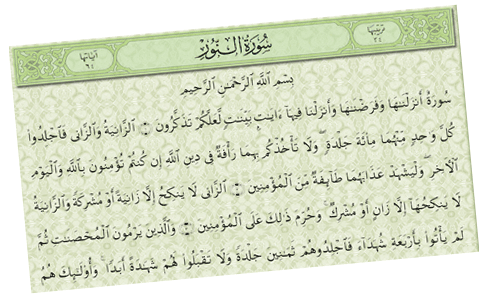 ترتيبها ٢٤
سُورَةُ النُّورِ
آياتها ٦٤
بِسْمِ ٱللَّهِ ٱلرَّحْمَٰنِ ٱلرَّحِيمِ
سُورَةٌ أَنزَلْنَٰهَا وَفَرَضْنَٰهَا وَأَنزَلْنَا فِيهَآ ءَايَٰتٍۭ بَيِّنَٰتٍ لَّعَلَّكُمْ تَذَكَّرُونَ ١ ٱلزَّانِيَةُ وَٱلزَّانِى فَٱجْلِدُوا۟
كُلَّ وَٰحِدٍ مِّنْهُمَا مِا۟ئَةَ جَلْدَةٍ ۖ وَلَا تَأْخُذْكُم بِهِمَا رَأْفَةٌ فِى دِينِ ٱللَّهِ إِن كُنتُمْ تُؤْمِنُونَ بِٱللَّهِ وَٱلْيَوْمِ
ٱلْءَاخِرِ ۖ وَلْيَشْهَدْ عَذَابَهُمَا طَآئِفَةٌ مِّنَ ٱلْمُؤْمِنِينَ ٢ ٱلزَّانِى لَا يَنكِحُ إِلَّا زَانِيَةً أَوْ مُشْرِكَةً وَٱلزَّانِيَةُ
لَا يَنكِحُهَآ إِلَّا زَانٍ أَوْ مُشْرِكٌ ۚ وَحُرِّمَ ذَٰلِكَ عَلَى ٱلْمُؤْمِنِينَ ٣ وَٱلَّذِينَ يَرْمُونَ ٱلْمُحْصَنَٰتِ ثُمَّ
لَمْ يَأْتُوا۟ بِأَرْبَعَةِ شُهَدَآءَ فَٱجْلِدُوهُمْ ثَمَٰنِينَ جَلْدَةً وَلَا تَقْبَلُوا۟ لَهُمْ شَهَٰدَةً أَبَدًا ۚ وَأُو۟لَٰٓئِكَ هُمُ